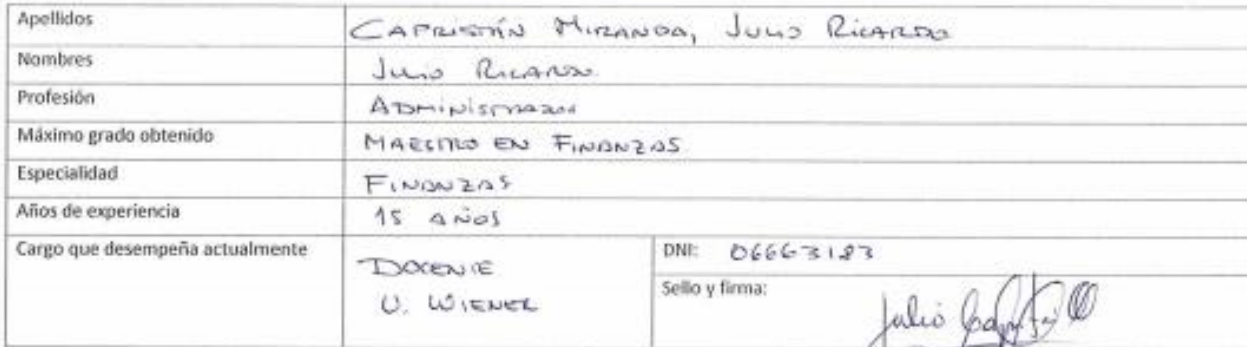 Apellidos CAPRISTÁN MIRANDA, JULIO RICARDO
Nombres JULIO RICARDO
Profesión ADMINISTRADOR
Máximo grado obtenido MAESTRO EN FINANZAS
Especialidad FINANZAS
Años de experiencia 15 AÑOS
Cargo que desempeña actualmente DOCENTE
U. WIENER
DNI: 06663183
Sello y firma: Julio